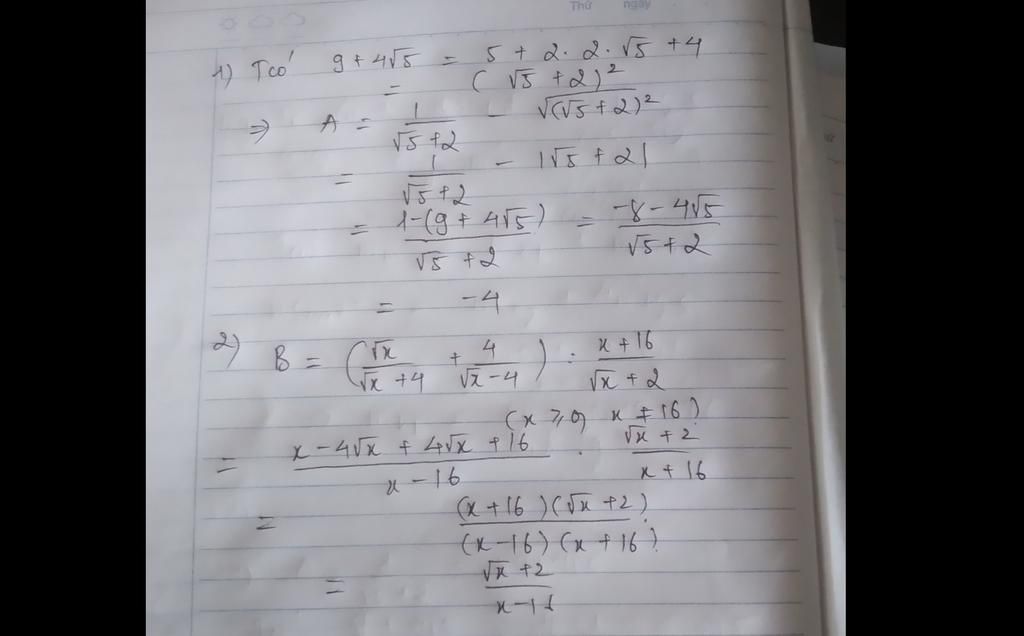 Thứ ngày
1) Tcó 9 + 4√5 = 5 + 2. 2. √5 + 4
= (√5 + 2)²
⇒ A = 1/(√5 + 2) - √((√5 + 2)²)
= 1/(√5 + 2) - |√5 + 2|
= (1 - (9 + 4√5))/(√5 + 2) = (-8 - 4√5)/(√5 + 2)
= -4
2) B = (√x/(√x + 4) + 4/(√x - 4)) : (x + 16)/(√x + 2)
(x ⩾ 0, x ≠ 16)
= (x - 4√x + 4√x + 16)/(x - 16) . (√x + 2)/(x + 16)
= ((x + 16)(√x + 2))/((x - 16)(x + 16))
= (√x + 2)/(x - 16)